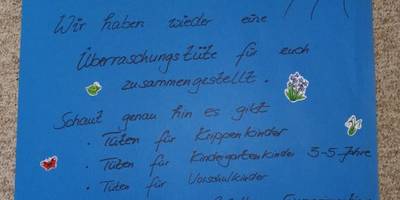 Wir haben wieder eine
Überraschungstüte für euch
zusammengestellt.
Schaut genau hin es gibt
· Tüten für Krippenkinder
· Tüten für Kindergartenkinder 3-5 Jahre
· Tüten für Vorschulkinder